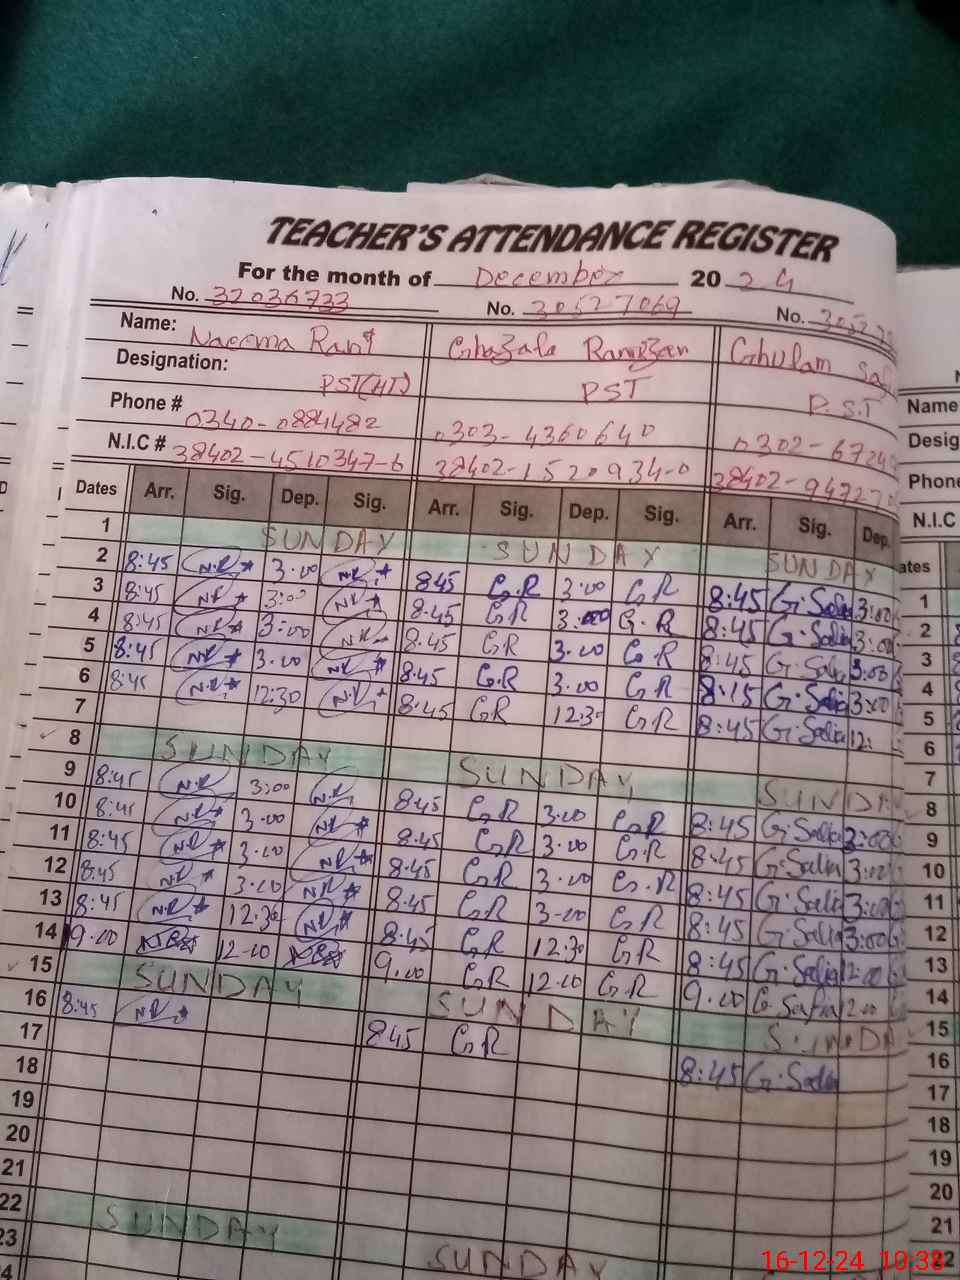 TEACHER'S ATTENDANCE REGISTER
For the month of December 20 24
No. 32036733 No. 30527069 No.
Name: Ghazala Ramzan Ghulam
Designation: PST(HT) PST P.S.T
Phone # 0340-0884482 0303-4360640 0302-
N.I.C # 38402-4510347-6 38402-1520934-0 38402-
Dates Arr. Sig. Dep. Sig. Arr. Sig. Dep. Sig. Arr. Sig. Dep.
1 SUNDAY SUNDAY SUNDAY
2 8:45 N.R 3.00 N.R 8:45 G.R 3.00 G R 8:45 G.Safia 3:00
3 8:45 N.R 3:00 N.R 8.45 G R 3.00 G.R 8:45 G.Safia 3:00
4 8:45 N.R 3:00 N.R 8:45 G R 3.00 G R 8:45 G.Safia 3:00
5 8:45 N.R 3.00 N.R 8.45 G.R 3.00 G R 8:15 G.Safia 3:00
6 8:45 N.R 12:30 N.R 8.45 G R 12:30 G R 8:45 G.Safia 12:
7
8 SUNDAY SUNDAY SUNDA
9 8:45 N.R 3:00 N.R 8:45 G R 3.00 G R 8:45 G.Safia 3:00
10 8:45 N.R 3.00 N.R 8.45 G R 3.00 G.R 8:45 G.Safia 3:00
11 8:45 N.R 3.00 N.R 8:45 G R 3.00 G.R 8:45 G.Safia 3:00
12 8:45 N.R 3.00 N.R 8.45 G R 3-00 G R 8:45 G.Safia 3:00
13 8:45 N.R 12:30 N.R 8:45 G R 12.30 G R 8:45 G.Safia 12:00
14 9.00 12-00 9.00 G R 12.00 G R 9.00 G Safia 12.00
15 SUNDAY SUNDAY SUNDA
16 8:45 N.R 8:45 G R 8:45 G.Safia
17
18
19
20
21
22 SUNDAY SUNDAY
23
Name
Desig
Phone
N.I.C
ates
1
2
3
4
5
6
7
8
9
10
11
12
13
14
15
16
17
18
19
20
21
22
16-12-24 10:38